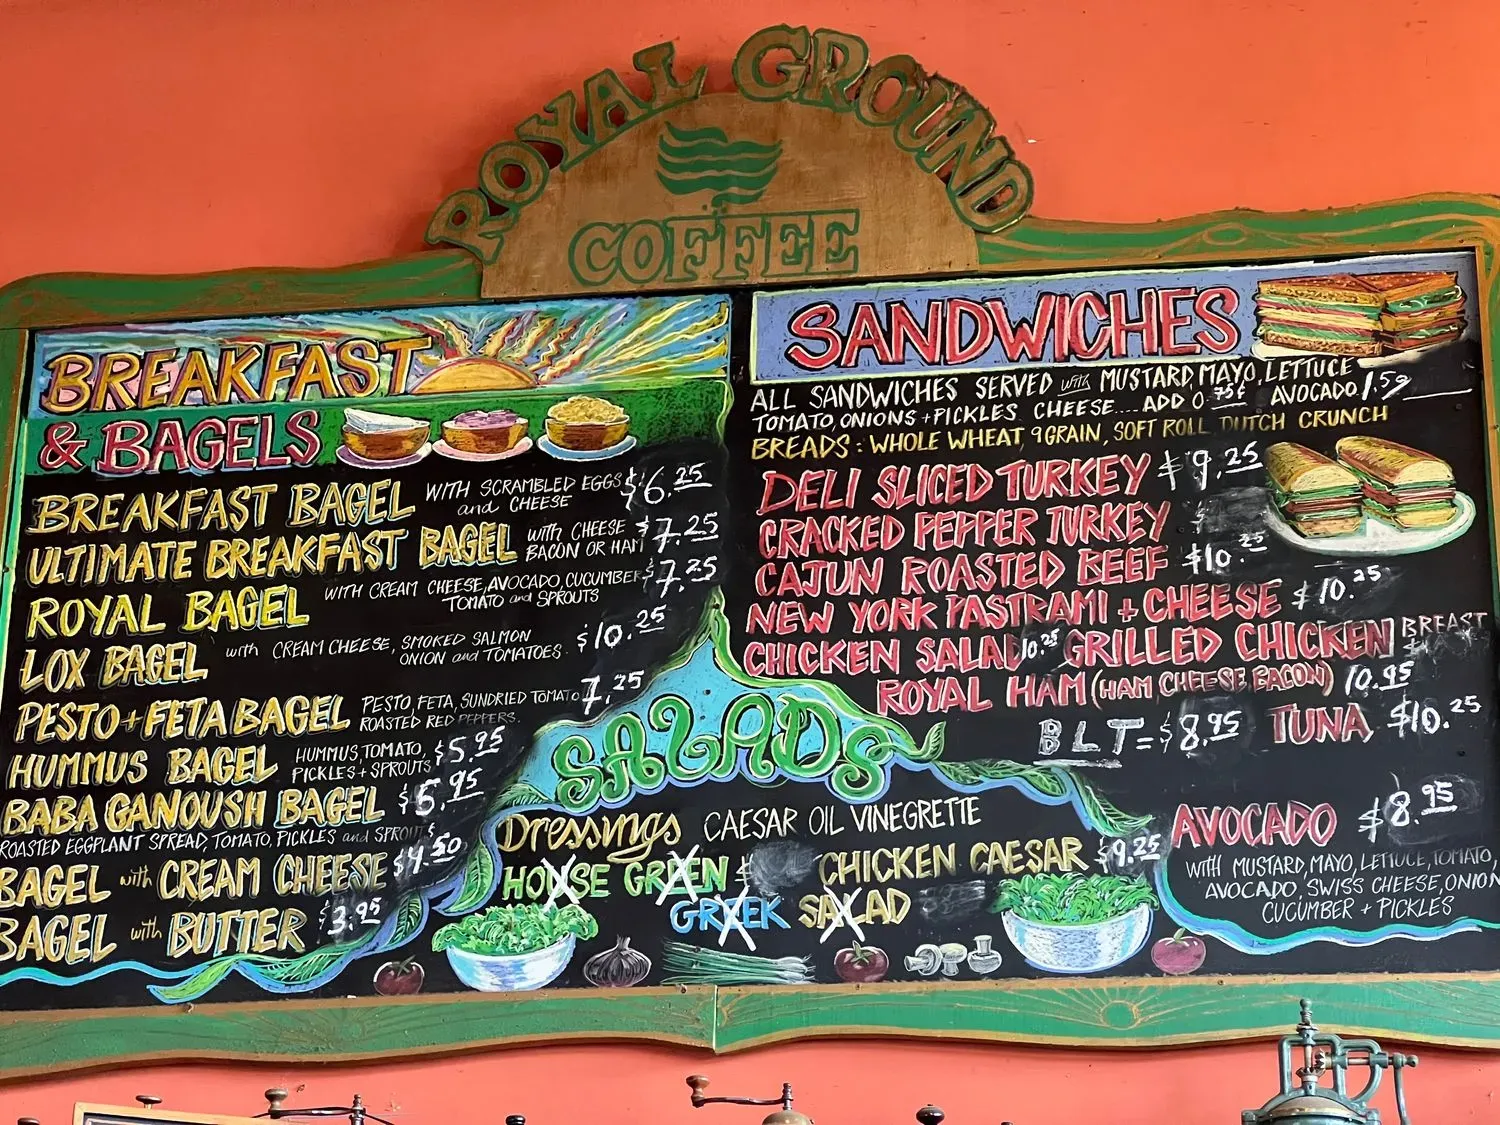 ROYAL GROUND
COFFEE
BREAKFAST
& BAGELS
BREAKFAST BAGEL WITH SCRAMBLED EGGS $6.25
and CHEESE
ULTIMATE BREAKFAST BAGEL with CHEESE $7.25
BACON OR HAM
ROYAL BAGEL WITH CREAM CHEESE, AVOCADO, CUCUMBER $7.25
TOMATO and SPROUTS
LOX BAGEL with CREAM CHEESE, SMOKED SALMON $10.25
ONION and TOMATOES
PESTO + FETA BAGEL PESTO, FETA, SUNDRIED TOMATO 7.25
ROASTED RED PEPPERS.
HUMMUS BAGEL HUMMUS, TOMATO, $5.95
PICKLES + SPROUTS
BABA GANOUSH BAGEL $5.95
ROASTED EGGPLANT SPREAD, TOMATO, PICKLES and SPROUTS
BAGEL with CREAM CHEESE $4.50
BAGEL with BUTTER $3.95
SANDWICHES
ALL SANDWICHES SERVED with MUSTARD, MAYO, LETTUCE
TOMATO, ONIONS + PICKLES CHEESE.... ADD 0.75¢ AVOCADO 1.59
BREADS: WHOLE WHEAT, 9 GRAIN, SOFT ROLL DUTCH CRUNCH
DELI SLICED TURKEY $9.25
CRACKED PEPPER TURKEY
CAJUN ROASTED BEEF $10.25
NEW YORK PASTRAMI + CHEESE $10.25
CHICKEN SALAD 10.25 GRILLED CHICKEN BREAST
ROYAL HAM (HAM CHEESE, BACON) 10.95
BLT = $8.95 TUNA $10.25
AVOCADO $8.95
WITH MUSTARD, MAYO, LETTUCE, TOMATO,
AVOCADO, SWISS CHEESE, ONION
CUCUMBER + PICKLES
SALADS
Dressings CAESAR OIL VINEGRETTE
HOUSE GREEN $ CHICKEN CAESAR $9.25
GREEK SALAD